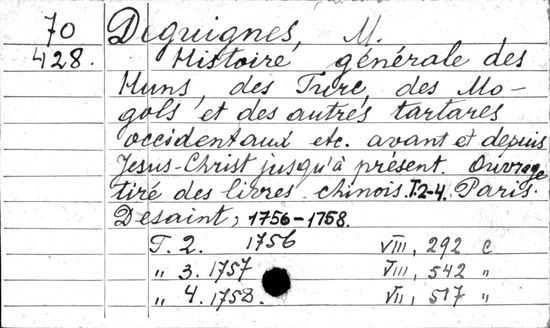 70 Deguignes, M.
428. Histoire générale des
Huns, des Turc, des Mo-
gols et des autres tartares
occidentaux etc. avant et depuis
Jesus-Christ jusqu'à présent. Ouvrage
tiré des livres chinois. T.2-4. Paris.
Desaint, 1756-1758.
T. 2. 1756 VIII, 292 c
„ 3. 1757 VIII, 542 „
„ 4. 1758. VII, 517 „